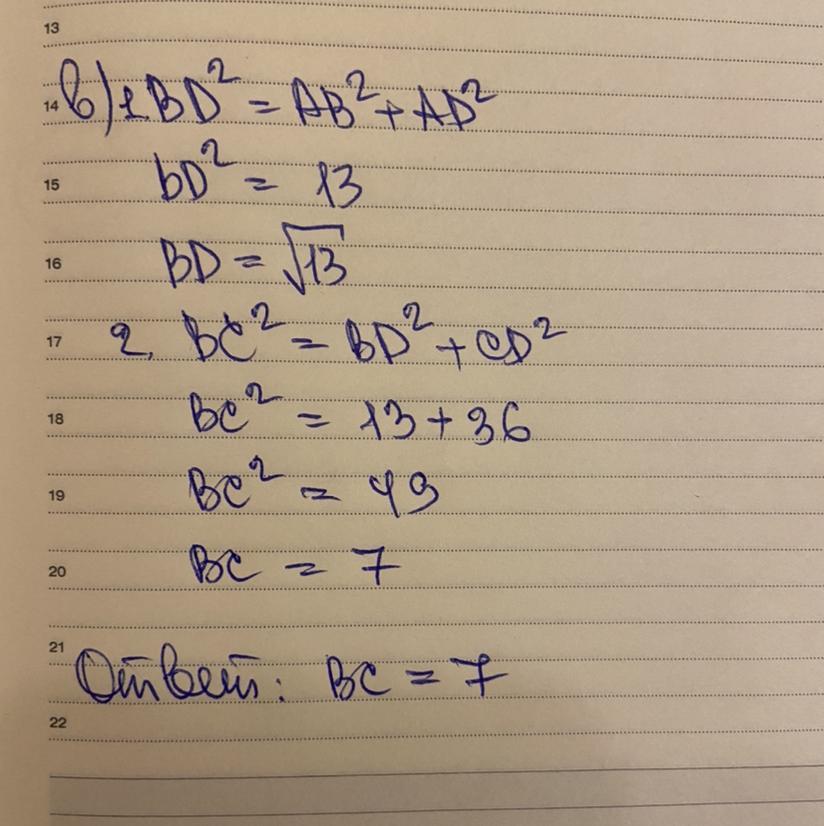 13
14 в) 1 BD² = AB² + AD²
15 BD² = 13
16 BD = √13
17 2. BC² = BD² + CD²
18 BC² = 13 + 36
19 BC² = 49
20 BC = 7
21 Ответ: BC = 7
22